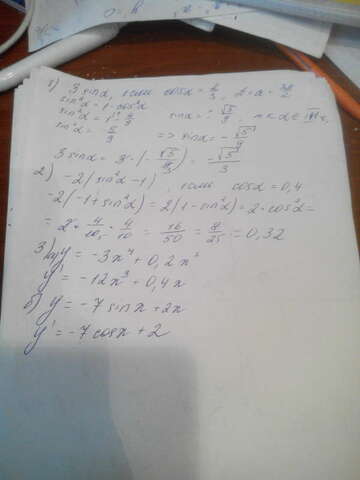 3 sinα, если cosα = 2/3,
sin²α = 1 - cos²α
sin²α = 1 - 4/9
sin²α = 5/9 => sinα = - √5/9
3 sinα = 3 · (- √5/9) = - √5/3
2) -2(sin²α - 1), если cosα = 0,4
-2(-1 + sin²α) = 2(1 - sin²α) = 2 · cos²α =
= 2 · 4/10 · 4/10 = 16/50 = 8/25 = 0,32
3) а) y = -3x⁴ + 0,2x²
y' = -12x³ + 0,4x
б) y = -7 sinx + 2x
y' = -7 cosx + 2